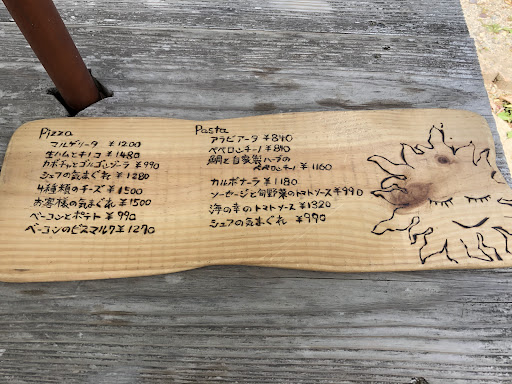 Pizza
マルゲリータ ¥1200
生ハムとキノコ ¥1480
カボチャとゴルゴンゾーラ ¥990
シェフの気まぐれ ¥1280
4種類のチーズ ¥1500
お客様の気まぐれ ¥1500
ベーコンとポテト ¥990
ベーコンのビスマルク ¥1270
Pasta
アラビアータ ¥840
ペペロンチーノ ¥840
鯛と自家製ハーブの
ペペロンチーノ ¥1160
カルボナーラ ¥1180
ソーセージと旬野菜のトマトソース ¥990
海の幸のトマトソース ¥1320
シェフの気まぐれ ¥990